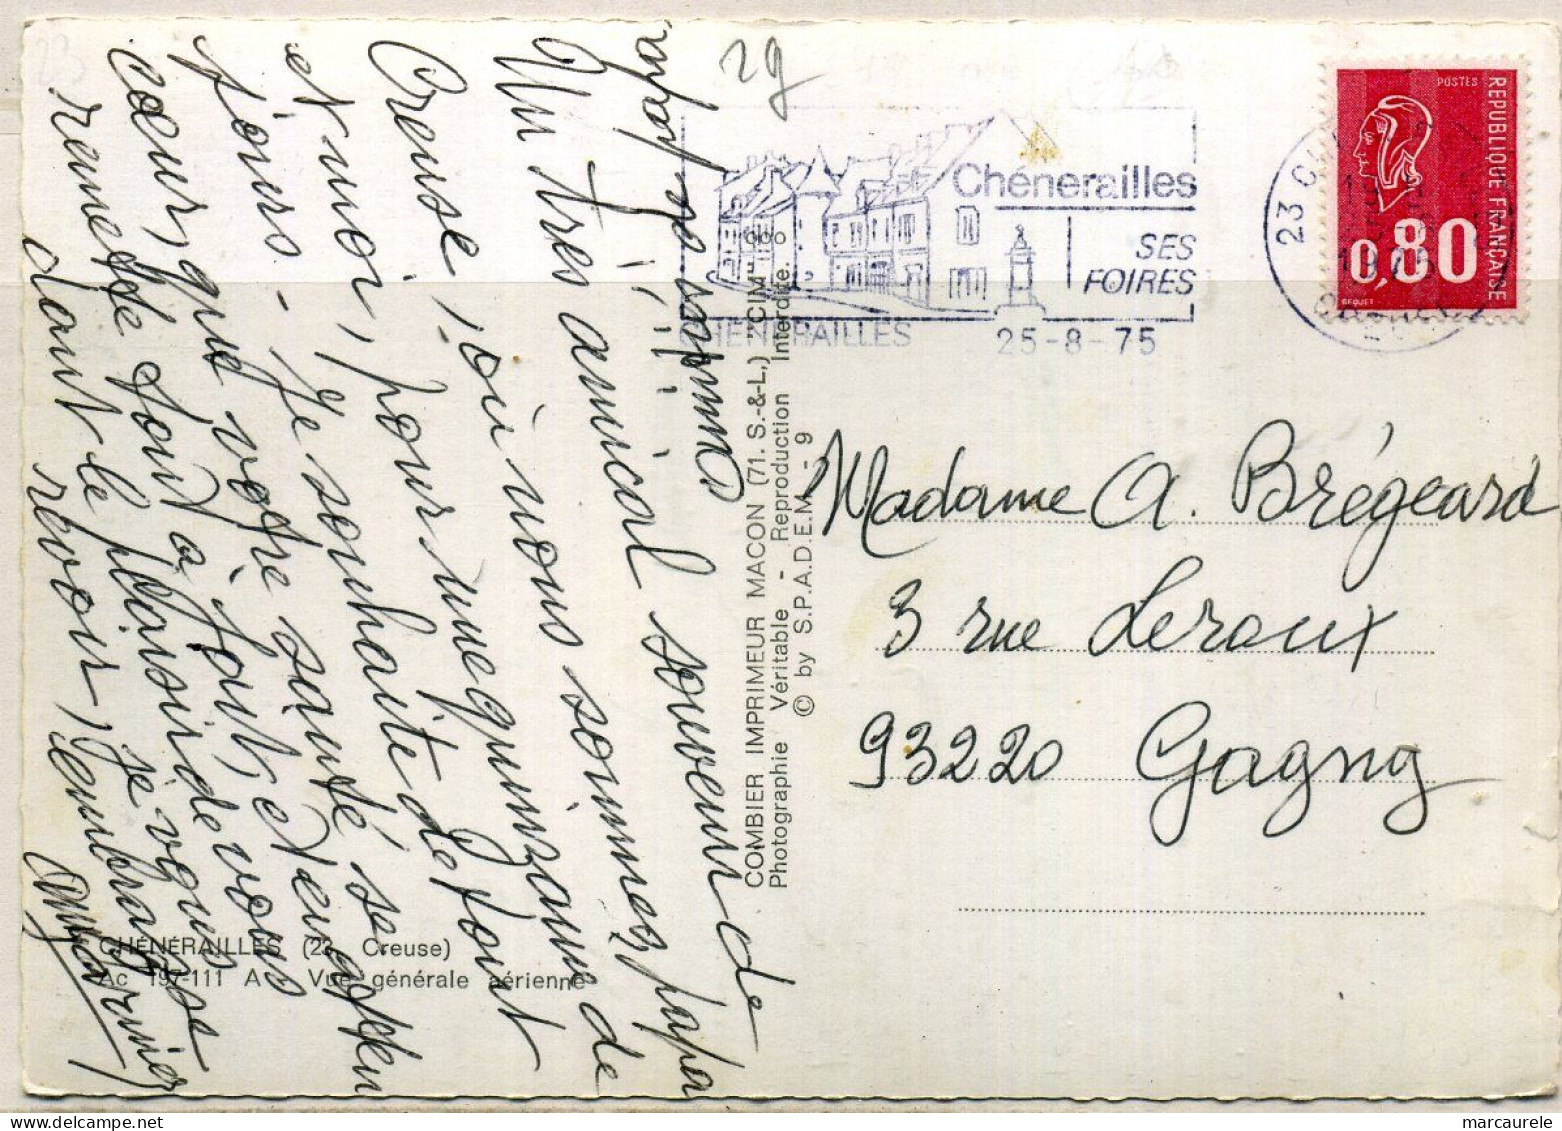 23
29
Chénerailles
SES
FOIRES
CHENERAILLES
25-8-75
23
1975
POSTES
REPUBLIQUE FRANÇAISE
0,80
BEQUET
Un très amical souvenir de
Creuse, où nous sommes, papa
et moi, pour une quinzaine de
jours - Je souhaite de tout
cœur, que votre santé se
remette tout à fait, et en
dont le plaisir de vous
revoir, je vous
embrasse
COMBIER IMPRIMEUR MACON (71. S.-&-L.) "CIM"
Photographie Véritable - Reproduction Interdite
© by S.P.A.D.E.M. - 9
CHÉNÉRAILLES (23 Creuse)
Ac 197-111 A - Vue générale aérienne
Madame A. Brégeard
3 rue Leroux
93220 Gagny
marcaurele